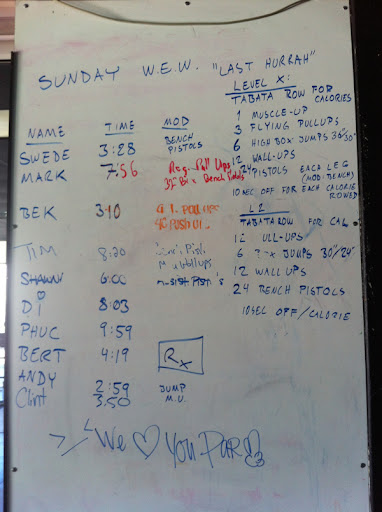 SUNDAY W.E.W. "LAST HURRAH"
NAME TIME MOD
SWEDE 3:28 BENCH PISTOLS
MARK 7:56 Reg. Pull Ups
Bench
BEK 310 PULL UPS
TIM 8:20
SHAWN 6:00
Di 8:03
PHUC 9:59
BERT 4:19 Rx
ANDY 2:59 JUMP
Clint 3:50 M.U.
"We ♡ You Par
LEVEL X:
TABATA ROW FOR CALORIES
1 MUSCLE-UP
3 FLYING PULLUPS
6 HIGH BOX JUMPS 36"/30"
12 WALL-UPS
24 PISTOLS EACH LEG
(MOD: BENCH)
10 SEC OFF FOR EACH CALORIE ROWED
L2
TABATA ROW FOR CAL
12 ULL-UPS
6 JUMPS 30"/24"
12 WALL UPS
24 BENCH PISTOLS
10SEC OFF/CALORIE